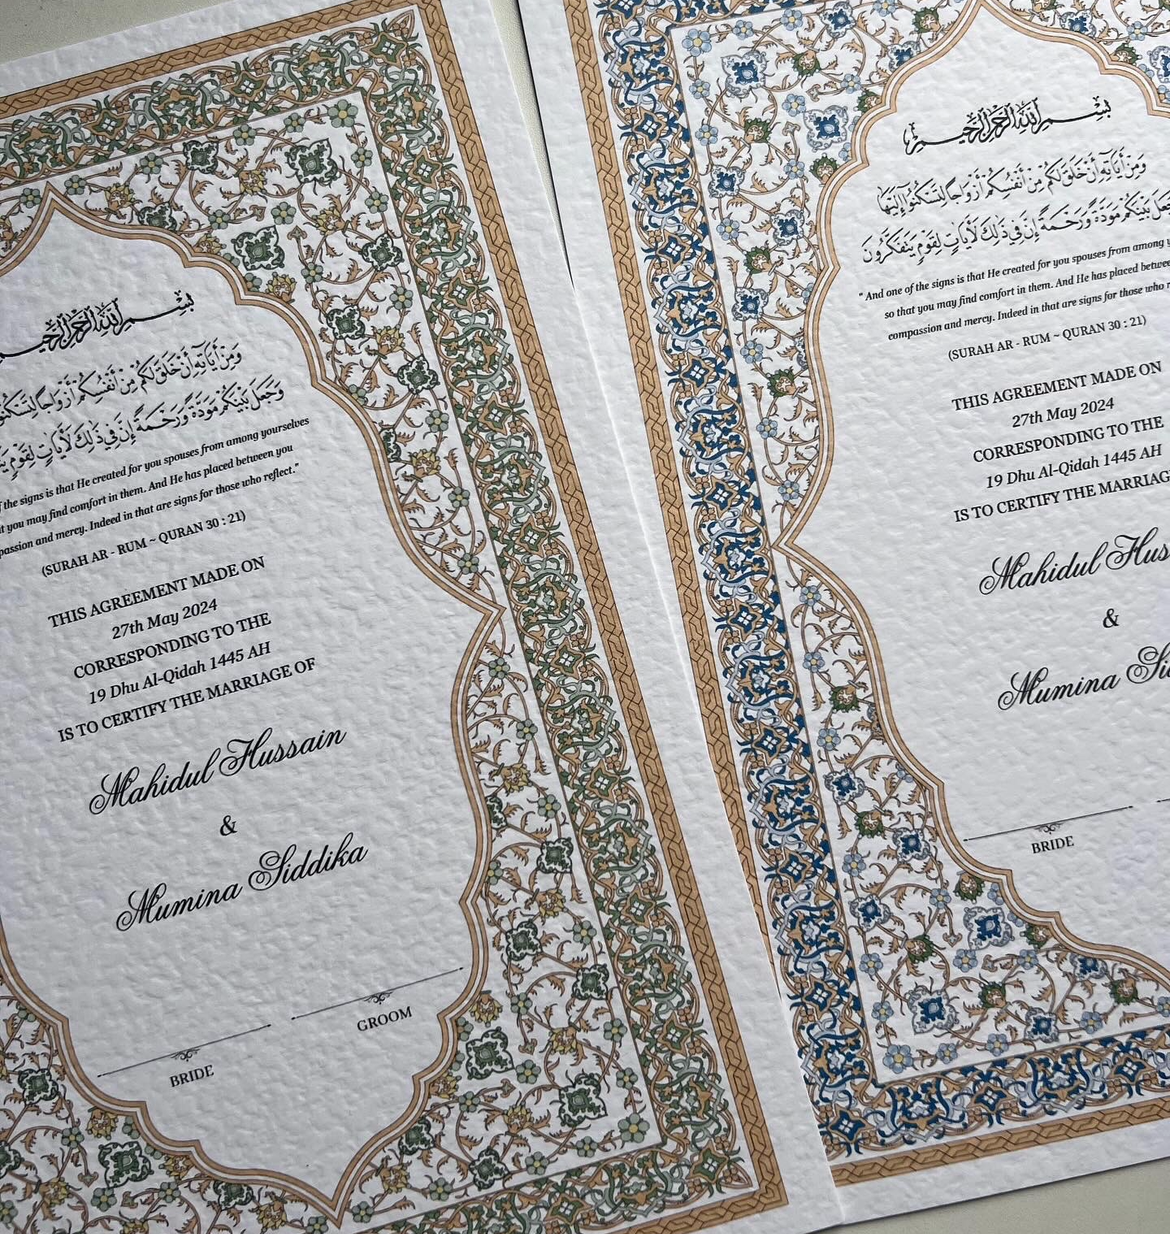 بِسْمِ اللَّهِ الرَّحْمَٰنِ الرَّحِيمِ
وَمِنْ آيَاتِهِ أَنْ خَلَقَ لَكُم مِّنْ أَنفُسِكُمْ أَزْوَاجًا
وَجَعَلَ بَيْنَكُم مَّوَدَّةً وَرَحْمَةً إِنَّ فِي ذَٰلِكَ لَآيَاتٍ لِّقَوْمٍ
the signs is that He created for you spouses from among yourselves
you may find comfort in them. And He has placed between you
and mercy. Indeed in that are signs for those who reflect."
(SURAH AR - RUM ~ QURAN 30 : 21)
THIS AGREEMENT MADE ON
27th May 2024
CORRESPONDING TO THE
19 Dhu Al-Qidah 1445 AH
IS TO CERTIFY THE MARRIAGE OF
Mahidul Hussain
&
Mumina Siddika
BRIDE
GROOM
بِسْمِ اللَّهِ الرَّحْمَٰنِ الرَّحِيمِ
وَمِنْ آيَاتِهِ أَنْ خَلَقَ لَكُم مِّنْ أَنفُسِكُمْ أَزْوَاجًا لِّتَسْكُنُوا إِلَيْهَا
بَيْنَكُم مَّوَدَّةً وَرَحْمَةً إِنَّ فِي ذَٰلِكَ لَآيَاتٍ لِّقَوْمٍ يَتَفَكَّرُونَ
" And one of the signs is that He created for you spouses from among
so that you may find comfort in them. And He has placed
compassion and mercy. Indeed in that are signs for those who
(SURAH AR - RUM ~ QURAN 30 : 21)
THIS AGREEMENT MADE ON
27th May 2024
CORRESPONDING TO THE
19 Dhu Al-Qidah 1445 AH
IS TO CERTIFY THE
Mahidul
&
Mumina
BRIDE